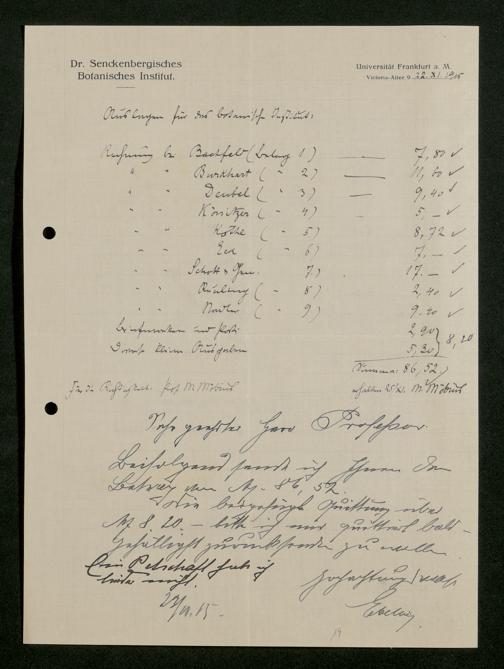 Dr. Senckenbergisches
Botanisches Institut.
Universität Frankfurt a. M.
Victoria-Allee 9 22. XI. 1915
Auslagen für das botanische Institut:
Rechnung bei Bechfeld (Beleg 1) — 7,80
" " Burkhart ( " 2) — 11,
" " Deubel ( " 3) — 9,40
" " ( " 4) 5, —
" " Kothe ( " 5) 8,72
" " ( " 6) 7, —
" " Schott & Gen. 7) 17. —
" " ( " 8) 2,40
" " ( " 9)
Briefmarken und Porti 2,90
Diverse kleine Ausgaben 5,30 } 8,20
Summa: 86,52
Für die Richtigkeit: Prof. M. Möbius
erhalten M. Möbius
Sehr geehrter Herr Professor.
Beifolgend sende ich Ihnen den
Betrag von M. 86,52.
Die beigefügte Quittung über
M 8.20. — bitte ich mir quittiert bald-
gefälligst zurücksenden zu wollen.
Ein Petschaft hab ich
leider nicht.
Hochachtungsvoll